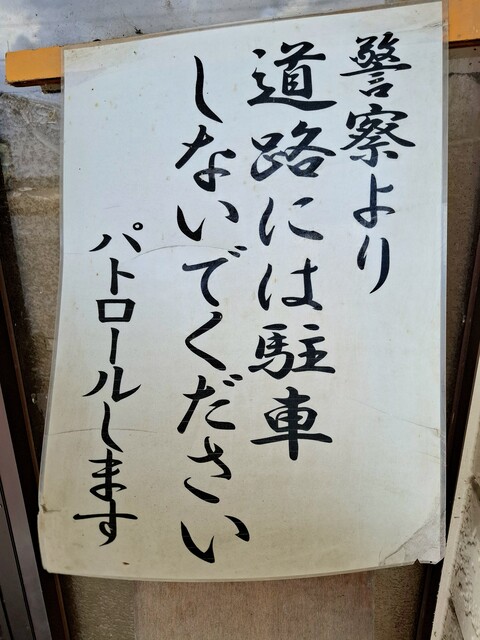 警察より
道路には駐車
しないでください
パトロールします